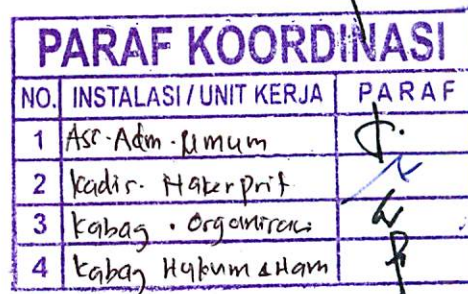 PARAF KOORDINASI
NO. INSTALASI / UNIT KERJA PARAF
1 Ass. Adm. Umum
2 Kadis.
3 Kabag. Organisasi
4 Kabag Hukum & Ham